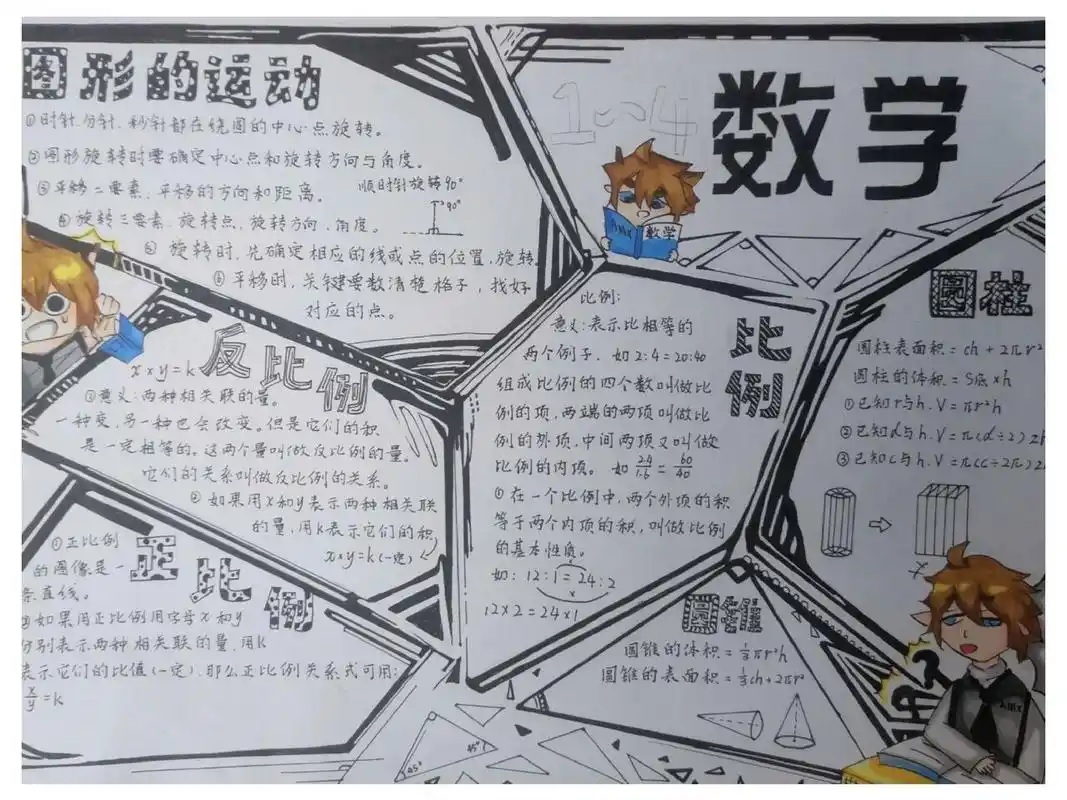 图形的运动
①时针.分针.秒针都在绕圆的中心点旋转。
②图形旋转时要确定中心点和旋转方向与角度。
③平移二要素.平移的方向和距离。
顺时针旋转90°
90°
④旋转三要素.旋转点,旋转方向.角度。
⑤旋转时.先确定相应的线或点的位置,旋转.
⑥平移时,关键要数清楚格子,找好
对应的点。
数学
数学
反比例
x×y=k
①意义:两种相关联的量.
一种变,另一种也会改变。但是它们的积
是一定相等的。这两个量叫做反比例的量。
它们的关系叫做反比例的关系。
②如果用x和y表示两种相关联
的量,用k表示它们的积
x×y=k(一定)
正比例
①正比例
的图像是一
条直线。
②如果用正比例用字母x和y
分别表示两种相关联的量,用K
表示它们的比值(一定).那么正比例关系式可用:
x/y=K
比例
比例:
意义:表示比相等的
两个例子.如2:4=20:40
组成比例的四个数叫做比
例的项,两端的两项叫做比
例的外项,中间两项又叫做
比例的内项。如2.4/1.6=60/40
①在一个比例中,两个外项的积
等于两个内项的积,叫做比例
的基本性质。
如:12:1=24:2
12×2=24×1
圆柱
圆柱表面积=ch+2πr²
圆柱的体积=S底×h
①已知r与h.V=πr²h
②已知d与h.V=π(d÷2)2h
③已知c与h.V=π(c÷2π)2
圆锥
圆锥的体积=⅓πr²h
圆锥的表面积=½ch+2πr²
45°
45°